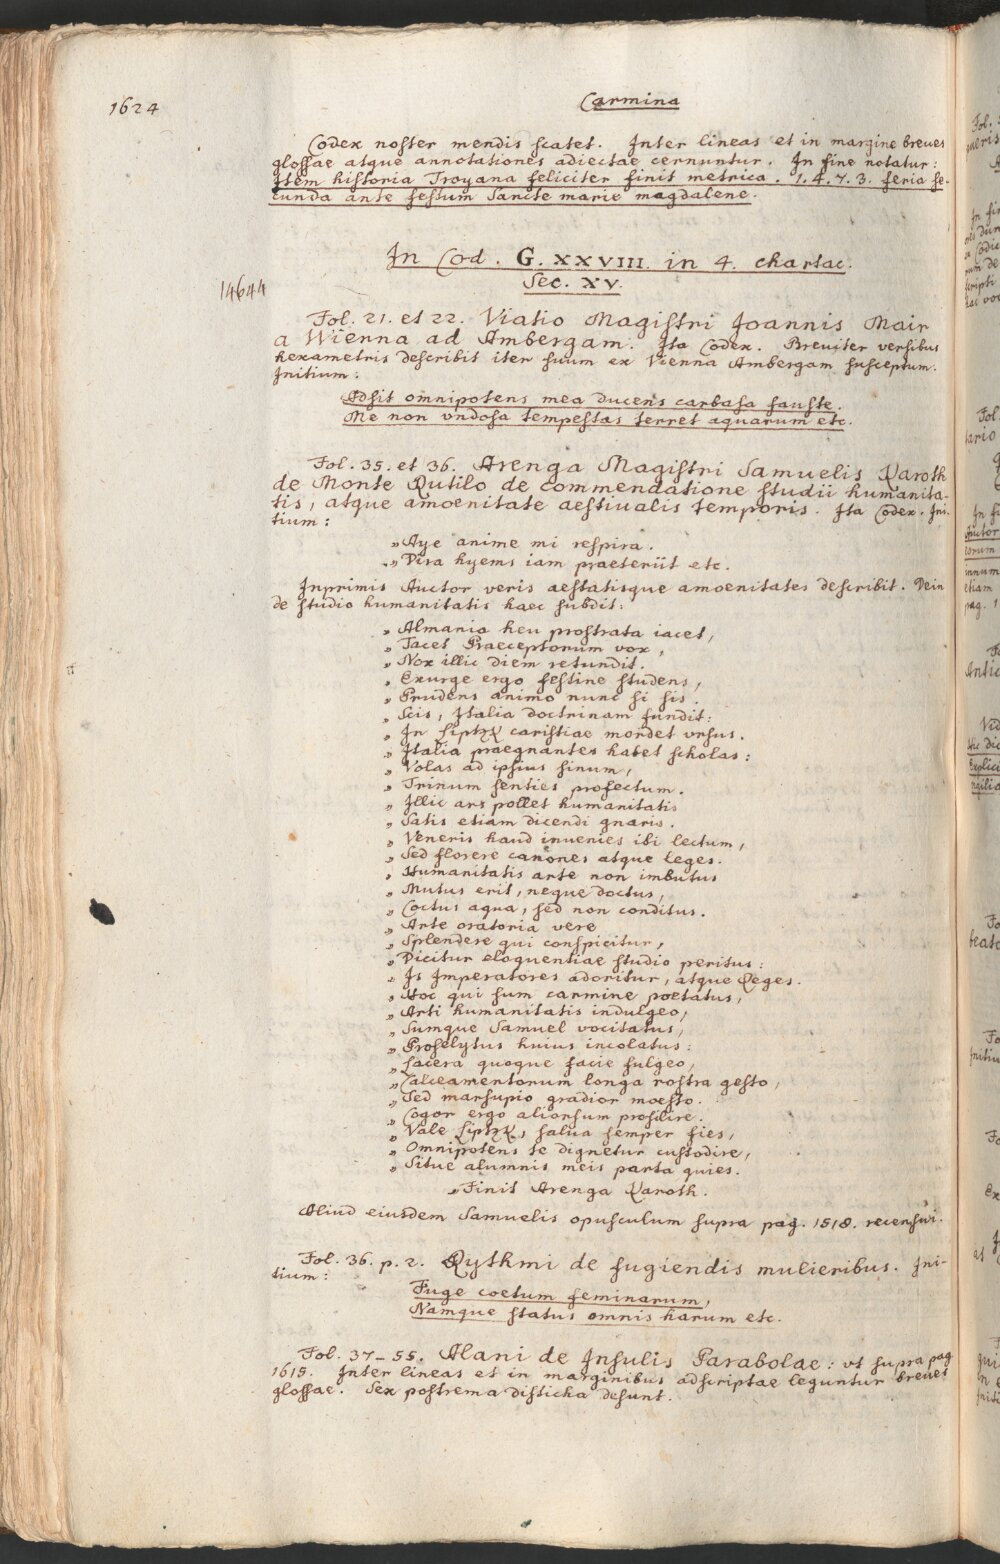 1624
Carmina
Codex noster mendis scatet. Inter lineas et in margine breues
glossae atque annotationes adiectae cernuntur. In fine notatur:
Item historia Troyana feliciter finit metrica. 1.4.7.3. feria se-
cunda ante festum Sancte marie magdalene.
In Cod. G. XXVIII. in 4. chartac.
Sec. XV.
14644
Fol. 21. et 22. Viatio Magistri Joannis Mair
a Wienna ad Ambergam. Ita Codex. Breuiter versibus
hexametris describit iter suum ex Vienna Ambergam susceptum.
Initium:
Adsit omnipotens mea ducens carbasa fauste.
Me non vndosa tempestas terret aquarum etc.
Fol. 35. et 36. Arenga Magistri Samuelis Karoth
de Monte Rutilo de commendatione studii humanita-
tis, atque amoenitate aestiualis temporis. Ita Codex. Ini-
tium:
„Aye anime mi respira.
„Dira hyems iam praeteriit etc.
Inprimis Auctor veris aestatisque amoenitates describit. Dein
de studio humanitatis haec subdit:
„ Almania heu prostrata iacet,
„ Tacet Praeceptorum vox,
„ Nox illic diem retundit.
„ Exurge ergo festine studens,
„ Prudens animo nunc si sis.
„ Scis, Italia doctrinam fundit:
„ In Liptzk caristiae mordet vrsus.
„ Italia praegnantes habet scholas:
„ Volas ad ipsius sinum,
„ Trinum senties profectum.
„ Illic ars pollet humanitatis
„ Satis etiam dicendi gnaris.
„ Veneris haud inuenies ibi lectum,
„ Sed florere canones atque leges.
„ Humanitatis arte non imbutus
„ Mutus erit, neque doctus,
„ Coctus aqua, sed non conditus.
„ Arte oratoria vere
„ Splendere qui conspicitur,
„ Dicitur eloquentiae studio peritus:
„ Is Imperatores adoritur, atque Reges.
„ Hoc qui sum carmine poetatus,
„ Arti humanitatis indulgeo,
„ Sumque Samuel vocitatus,
„ Proselytus huius incolatus:
„ Lacera quoque facie fulgeo,
„ Calceamentorum longa rostra gesto,
„ Sed marsupio gradior moesto.
„ Cogor ergo aliorsum prosilire.
„ Vale Liptzk, salua semper sies,
„ Omnipotens te dignetur custodire,
„ Sitque alumnis meis parta quies.
„Finit Arenga Karoth.
Aliud eiusdem Samuelis opusculum supra pag. 1518. recensui.
Fol. 36. p. 2. Rythmi de fugiendis mulieribus. Ini-
tium:
Fuge coetum feminarum,
Namque status omnis harum etc.
Fol. 37-55. Alani de Insulis Parabolae: vt supra pag
1615. Inter lineas et in marginibus adscriptae leguntur breues
glossae. Sex postrema disticha desunt.